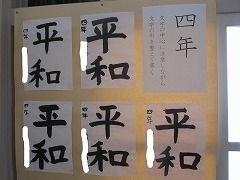 四年
文字の中心に注意しながら
文字の形を整えて書く
平和
四年
平和
四年
平和
四年
平和
四年
平和
四年